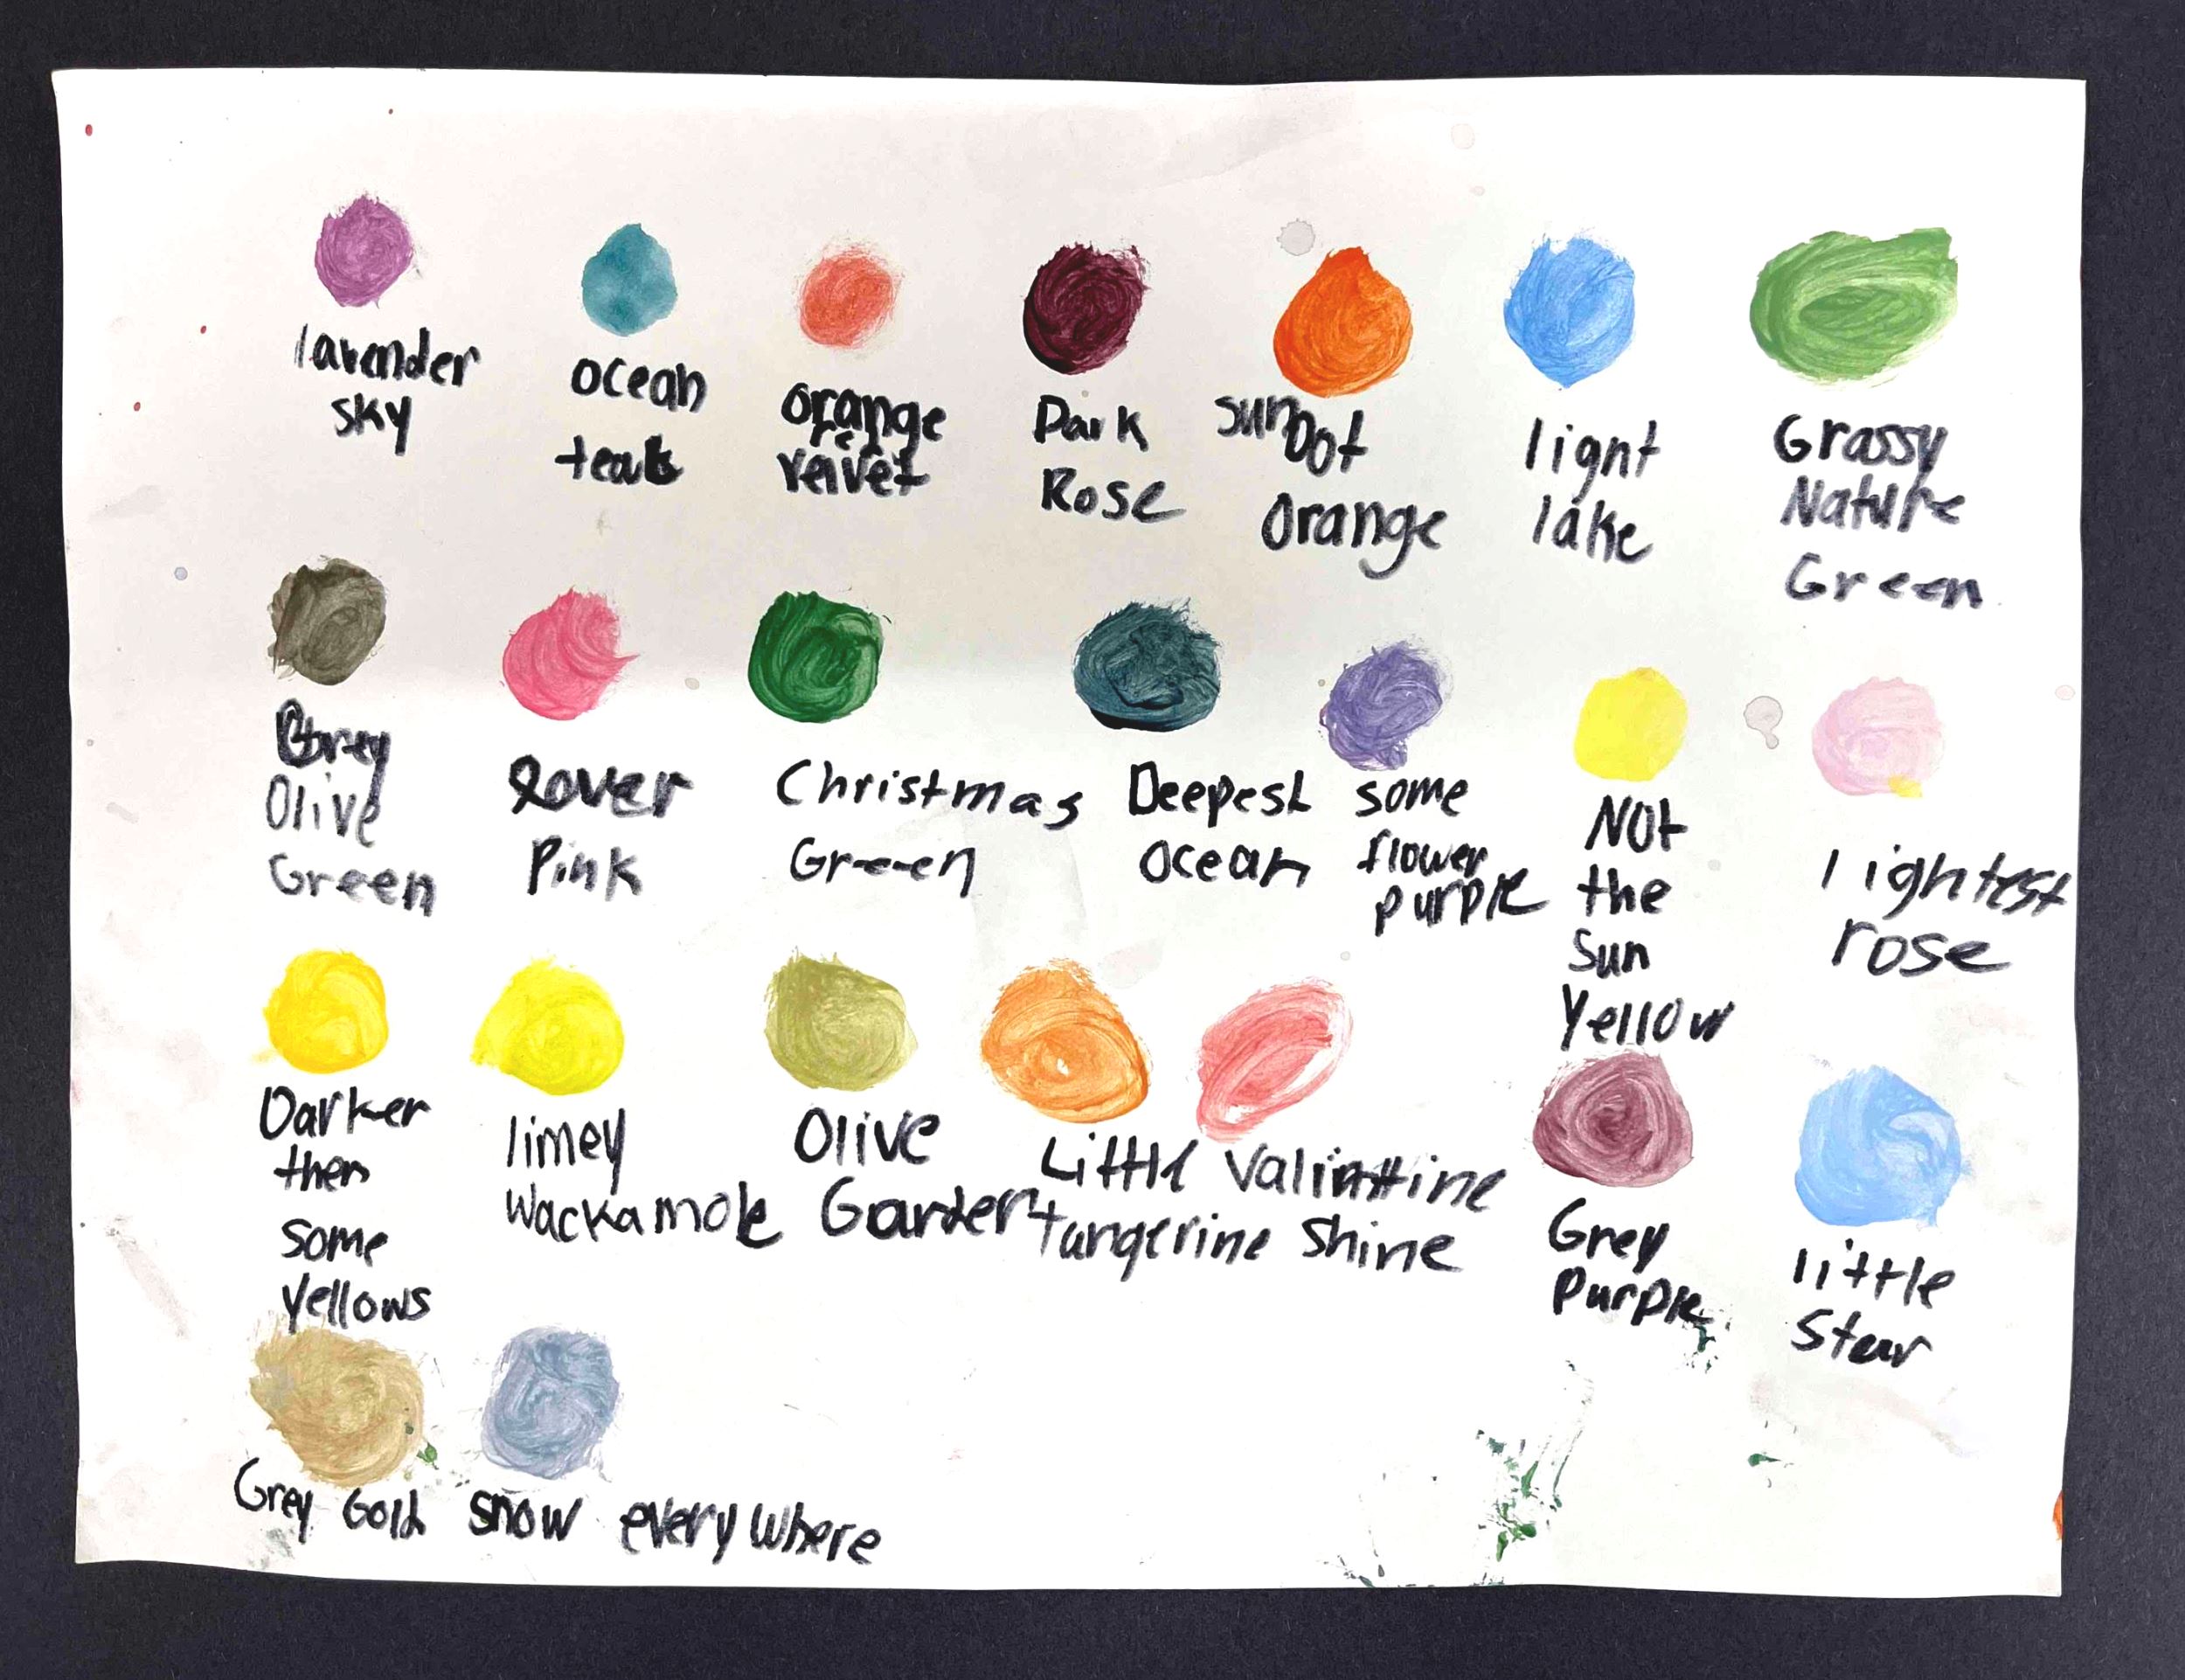 lavender
sky
ocean
teal
orange
velvet
Dark
Rose
sun
Dot
Orange
light
lake
Grassy
Nature
Green
Grey
Olive
Green
Lover
Pink
Christmas
Green
Deepest
Ocean
some
flower
purple
Not
the
Sun
Yellow
lightest
rose
Darker
then
some
yellows
limey
Wackamole
Olive
Garden
Little
tangerine
Valinttine
Shine
Grey
Purple
little
Star
Grey Gold
snow everywhere